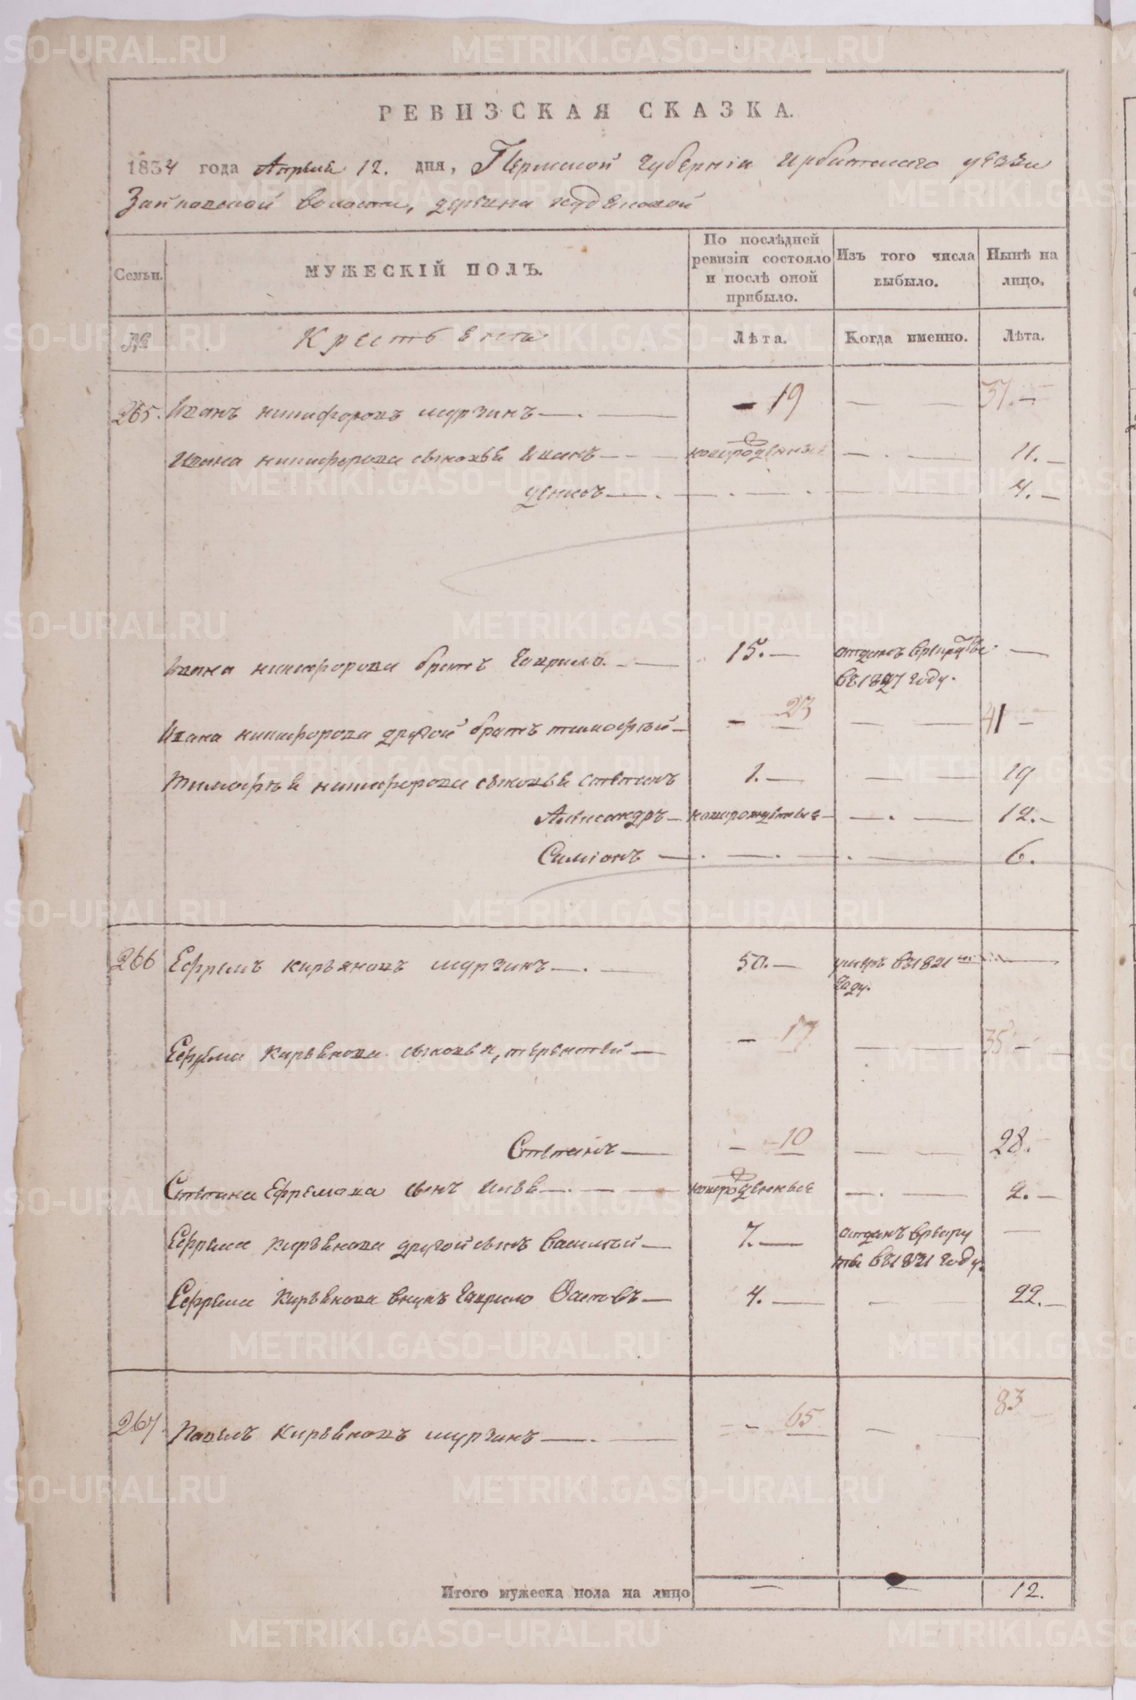 РЕВИЗСКАЯ СКАЗКА.
1834 года Апреля 12. дня, Пермской губернiи Ирбитскаго уезда
Зайковской волости, деревни
Семьи. МУЖЕСКIЙ ПОЛЪ. По послѣдней ревизiи состояло и послѣ оной прибыло. Изъ того числа выбыло. Нынѣ на лицо.
№ Крестьяне Лѣта. Когда именно. Лѣта.
265. Иванъ никифоровъ мурзинъ — 19 — 37. —
Ивана никифорова сыновья Иванъ — новорожденные — 11. —
денисъ — 4. —
Ивана никифорова братъ Гаврило — 15. — отданъ в рекруты въ 1827 году. —
Ивана никифорова другой братъ тимофѣй — 23 — 41 —
Тимофѣя никифорова сыновья степанъ 1. — 19
Александръ — новорожденные — 12. —
Симiонъ — 6.
266 Ефремъ кирьяновъ мурзинъ — 50. — умеръ въ 1821 году. —
Ефрема кирьянова сыновья, терентей — 17 — 35 —
Степанъ — 10 — 28.
Степана Ефремова сынъ Иевъ — новорожденные — 2. —
Ефрема кирьянова другой сынъ василей — 7. — отданъ в рекруты въ 1821 году. —
Ефрема кирьянова внукъ Гаврило — 4. — 22. —
267. Павелъ кирьяновъ мурзинъ — 65 — 83
Итого мужеска пола на лицо — — 12.
METRIKI.GASO-URAL.RU